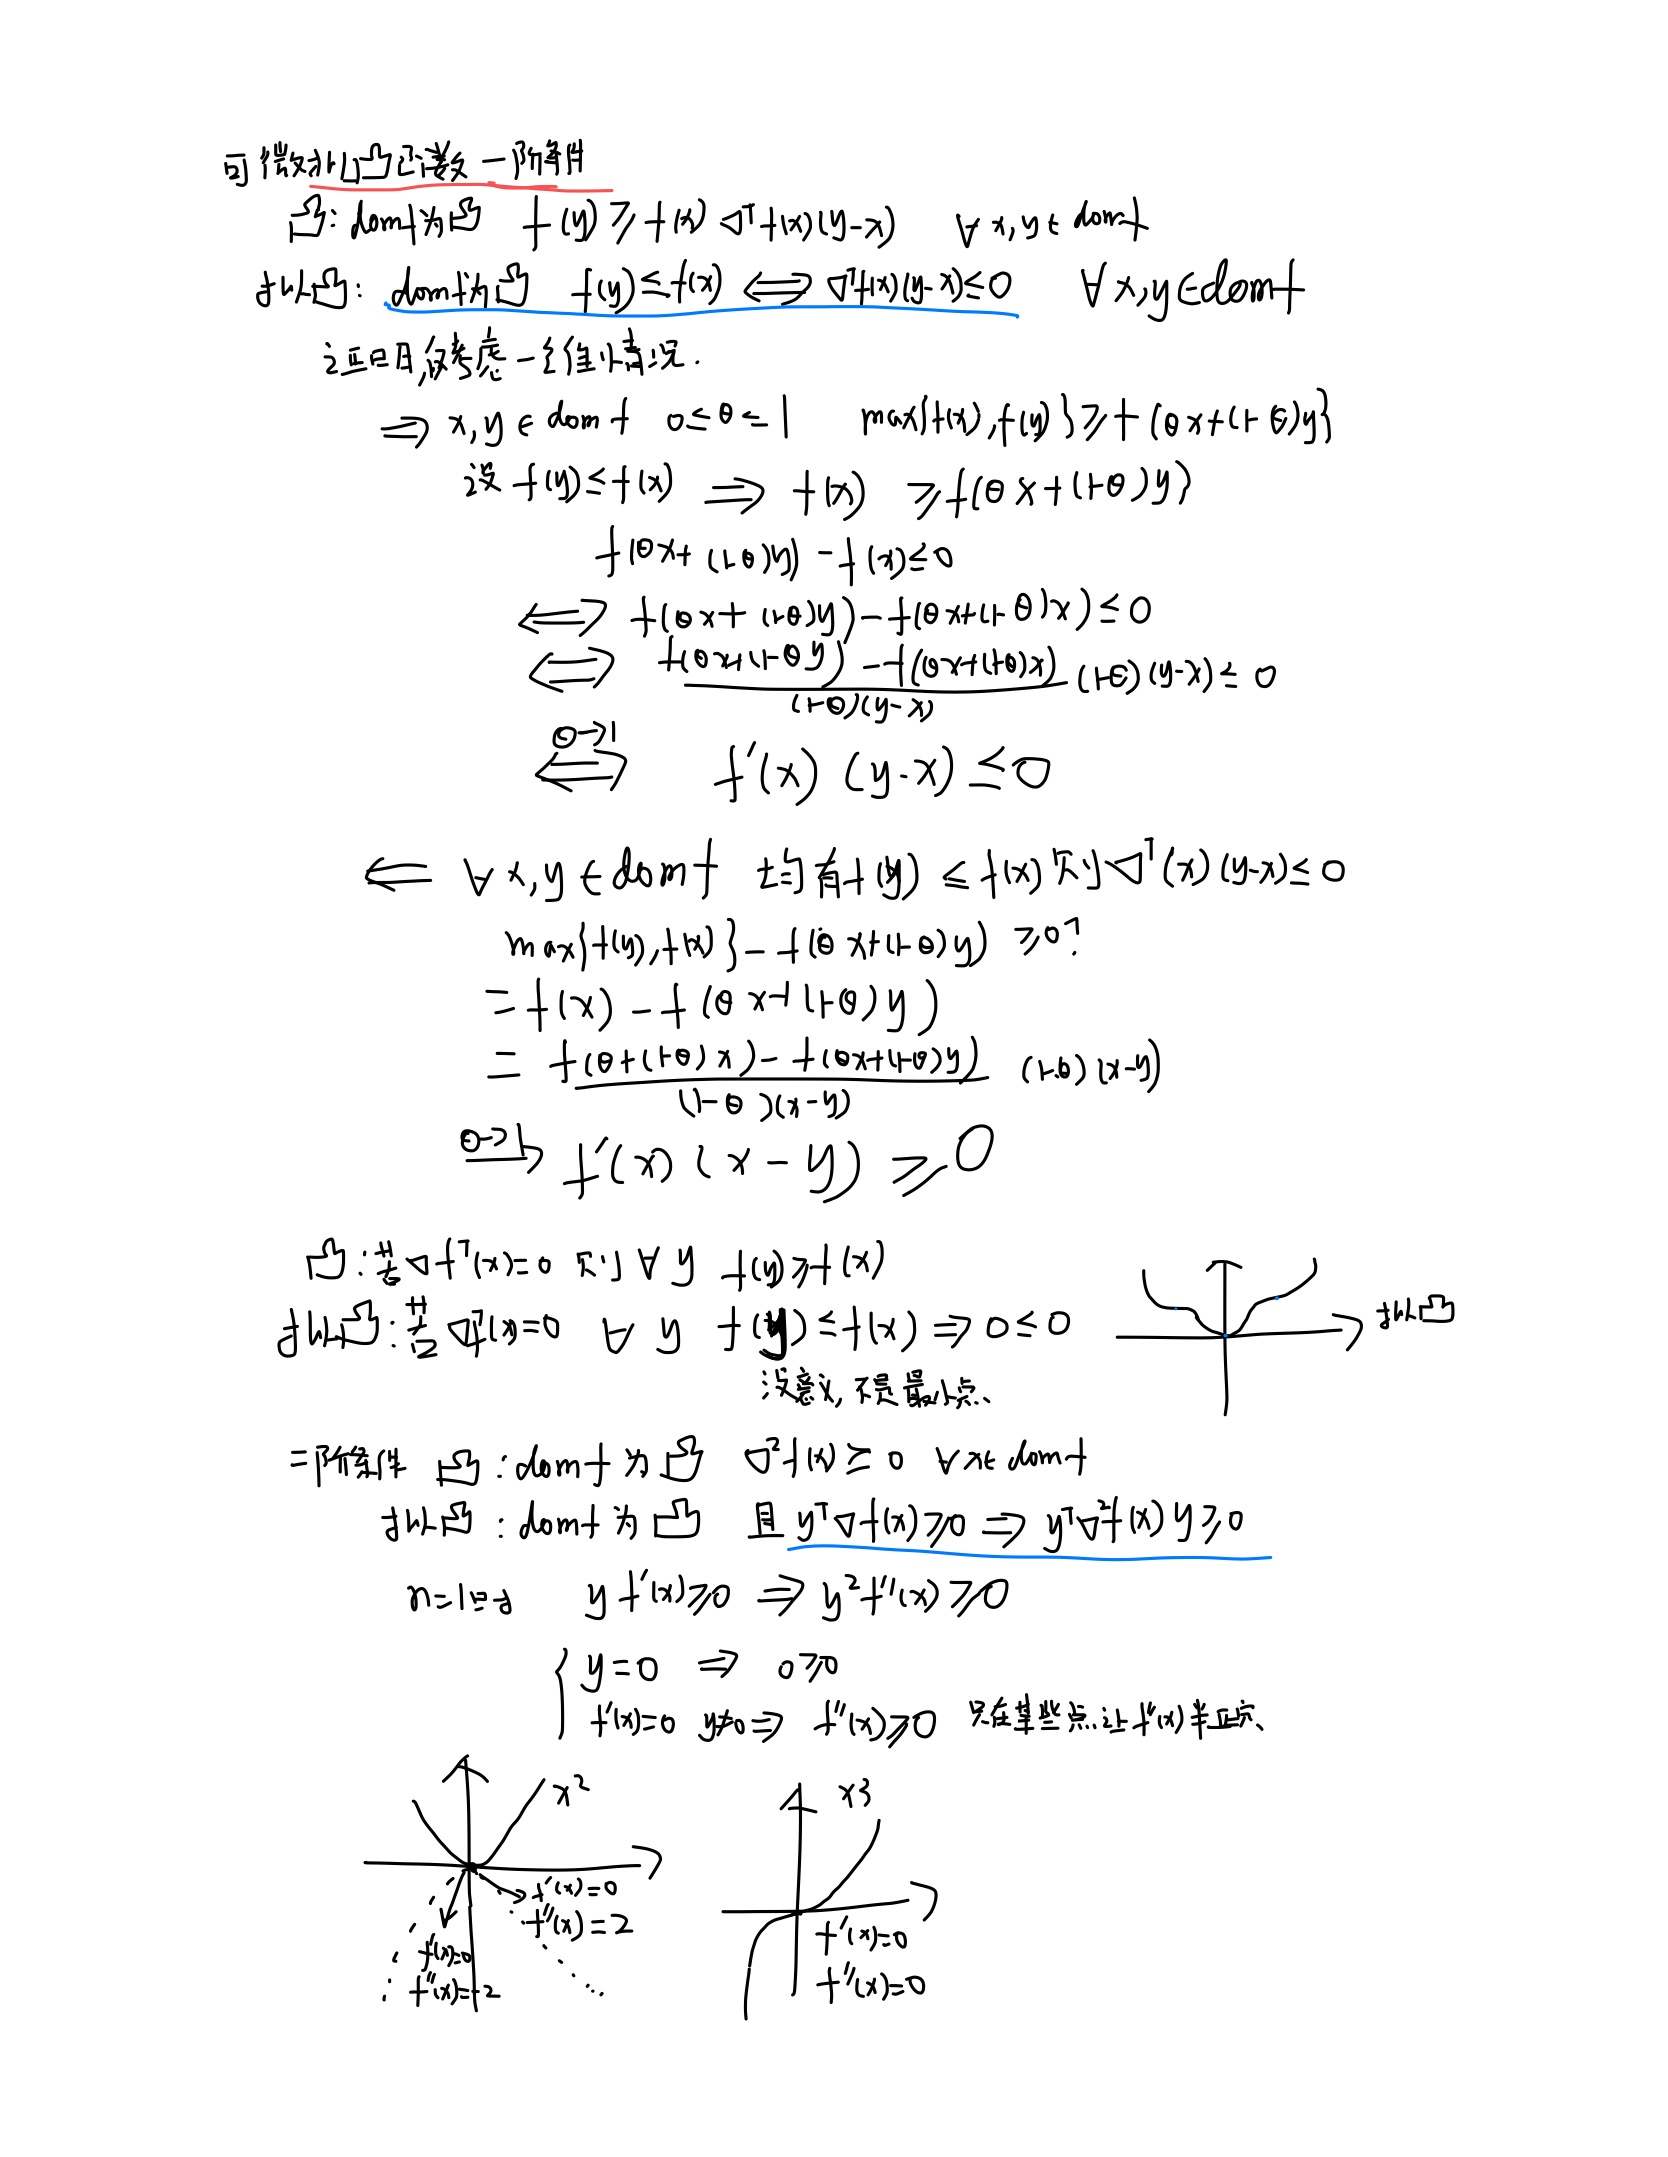 可微拟凸函数一阶条件
凸: domf为凸 f(y) ≥ f(x) ∇ᵀf(x)(y-x) ∀ x,y ∈ domf
拟凸: domf为凸 f(y) ≤ f(x) ⟺ ∇ᵀf(x)(y-x) ≤ 0 ∀ x,y ∈ domf
证明,仅考虑一维情况.
⟹ x,y ∈ domf 0 ≤ θ ≤ 1 max{f(x),f(y)} ≥ f(θx+(1-θ)y}
设 f(y) ≤ f(x) ⟹ f(x) ≥ f(θx+(1-θ)y)
f(θx+(1-θ)y) - f(x) ≤ 0
⟺ f(θx+(1-θ)y) - f(θx+(1-θ)x) ≤ 0
⟺ f(θx+(1-θy) - f(θx+(1-θ)x) (1-θ)(y-x) ≤ 0
(1-θ)(y-x)
θ→1
⟺ f'(x) (y-x) ≤ 0
⟸ ∀ x,y ∈ domf 均有f(y) ≤ f(x) 则∇ᵀ(x)(y-x) ≤ 0
max{f(y),f(x)} - f(θx+(1-θ)y) ≥ 0?
= f(x) - f(θx+(1-θ)y)
= f(θ+(1-θ)x) - f(θx+(1-θ)y) (1-θ)(x-y)
(1-θ)(x-y)
θ→1
→ f'(x)(x-y) ≥ 0
凸: 若∇fᵀ(x)=0 则 ∀ y f(y) ≥ f(x)
拟凸: 若 ∇fᵀ(x)=0 ∀ y f(y) ≤ f(x) ⟹ 0 ≤ 0
拟凸
没意义,不是最小点.
二阶条件 凸: domf 为凸 ∇²f(x) ≥ 0 ∀x∈ domf
拟凸: domf 为凸 且 yᵀ∇f(x) ≥ 0 ⟹ yᵀ∇²f(x)y ≥ 0
n=1时 yf'(x) ≥ 0 ⟹ y²f''(x) ≥ 0
{ y=0 ⟹ 0 ≥ 0
f'(x)=0 y≠0 ⟹ f''(x) ≥ 0 只在某些点.让f''(x)半正定.
x²
x3
f'(x)=0
f''(x)=2
f'(x)=0
f''(x)=-2
f'(x)=0
f''(x)=0